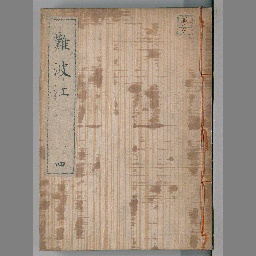 難波江
四